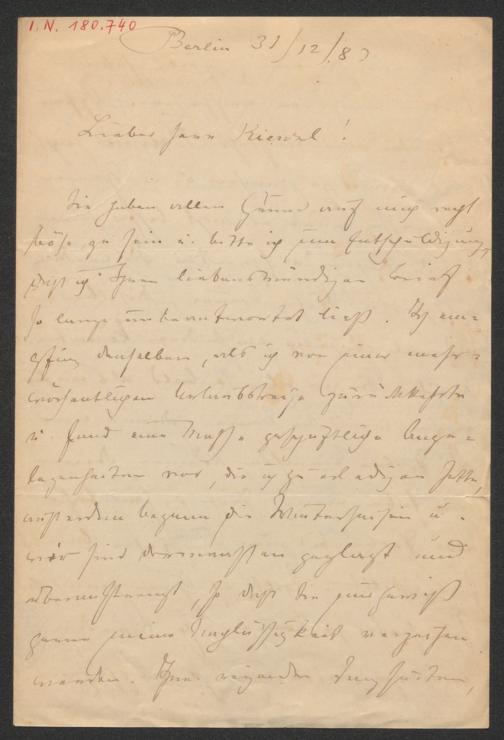 I. N. 180.740
Berlin 31/12/8
Lieber Herr Kienzl!
Sie haben allen Grund auf mich recht
böse zu sein u. bitte ich um Entschuldigung,
daß ich Ihren liebenswürdigen Brief
so lange unbeantwortet ließ. Ich em-
pfing denselben, als ich von einer mehr-
wöchentlichen Urlaubsreise zurückkehrte
u. fand eine Masse geschäftliche Ange-
legenheiten vor, die ich zu erledigen hatte,
außerdem begann die Wintersaison u.
wir sind dermaßen geplagt und
überanstrengt, so daß Sie mir gewiß
gerne meine Nachlässigkeit verzeihen
werden. Ihre